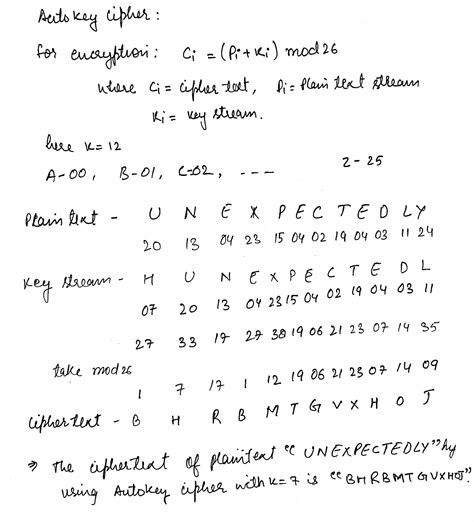 Autokey cipher:
for encryption: Ci = (Pi + Ki) mod 26
where Ci = cipher text, Pi = Plain text stream
Ki = key stream.
here K=12
A-00, B-01, C-02, --- Z-25
Plain text - U N E X P E C T E D L Y
20 13 04 23 15 04 02 19 04 03 11 24
Key stream - H U N E X P E C T E D L
07 20 13 04 23 15 04 02 19 04 03 11
27 33 17 27 38 19 06 21 23 07 14 35
take mod 26
1 7 17 1 12 19 06 21 23 07 14 09
Cipher text - B H R B M T G V X H O J
⇒ The ciphertext of plaintext "UNEXPECTEDLY" by
using Autokey cipher with K=7 is "BHRBMTGVXHOJ".